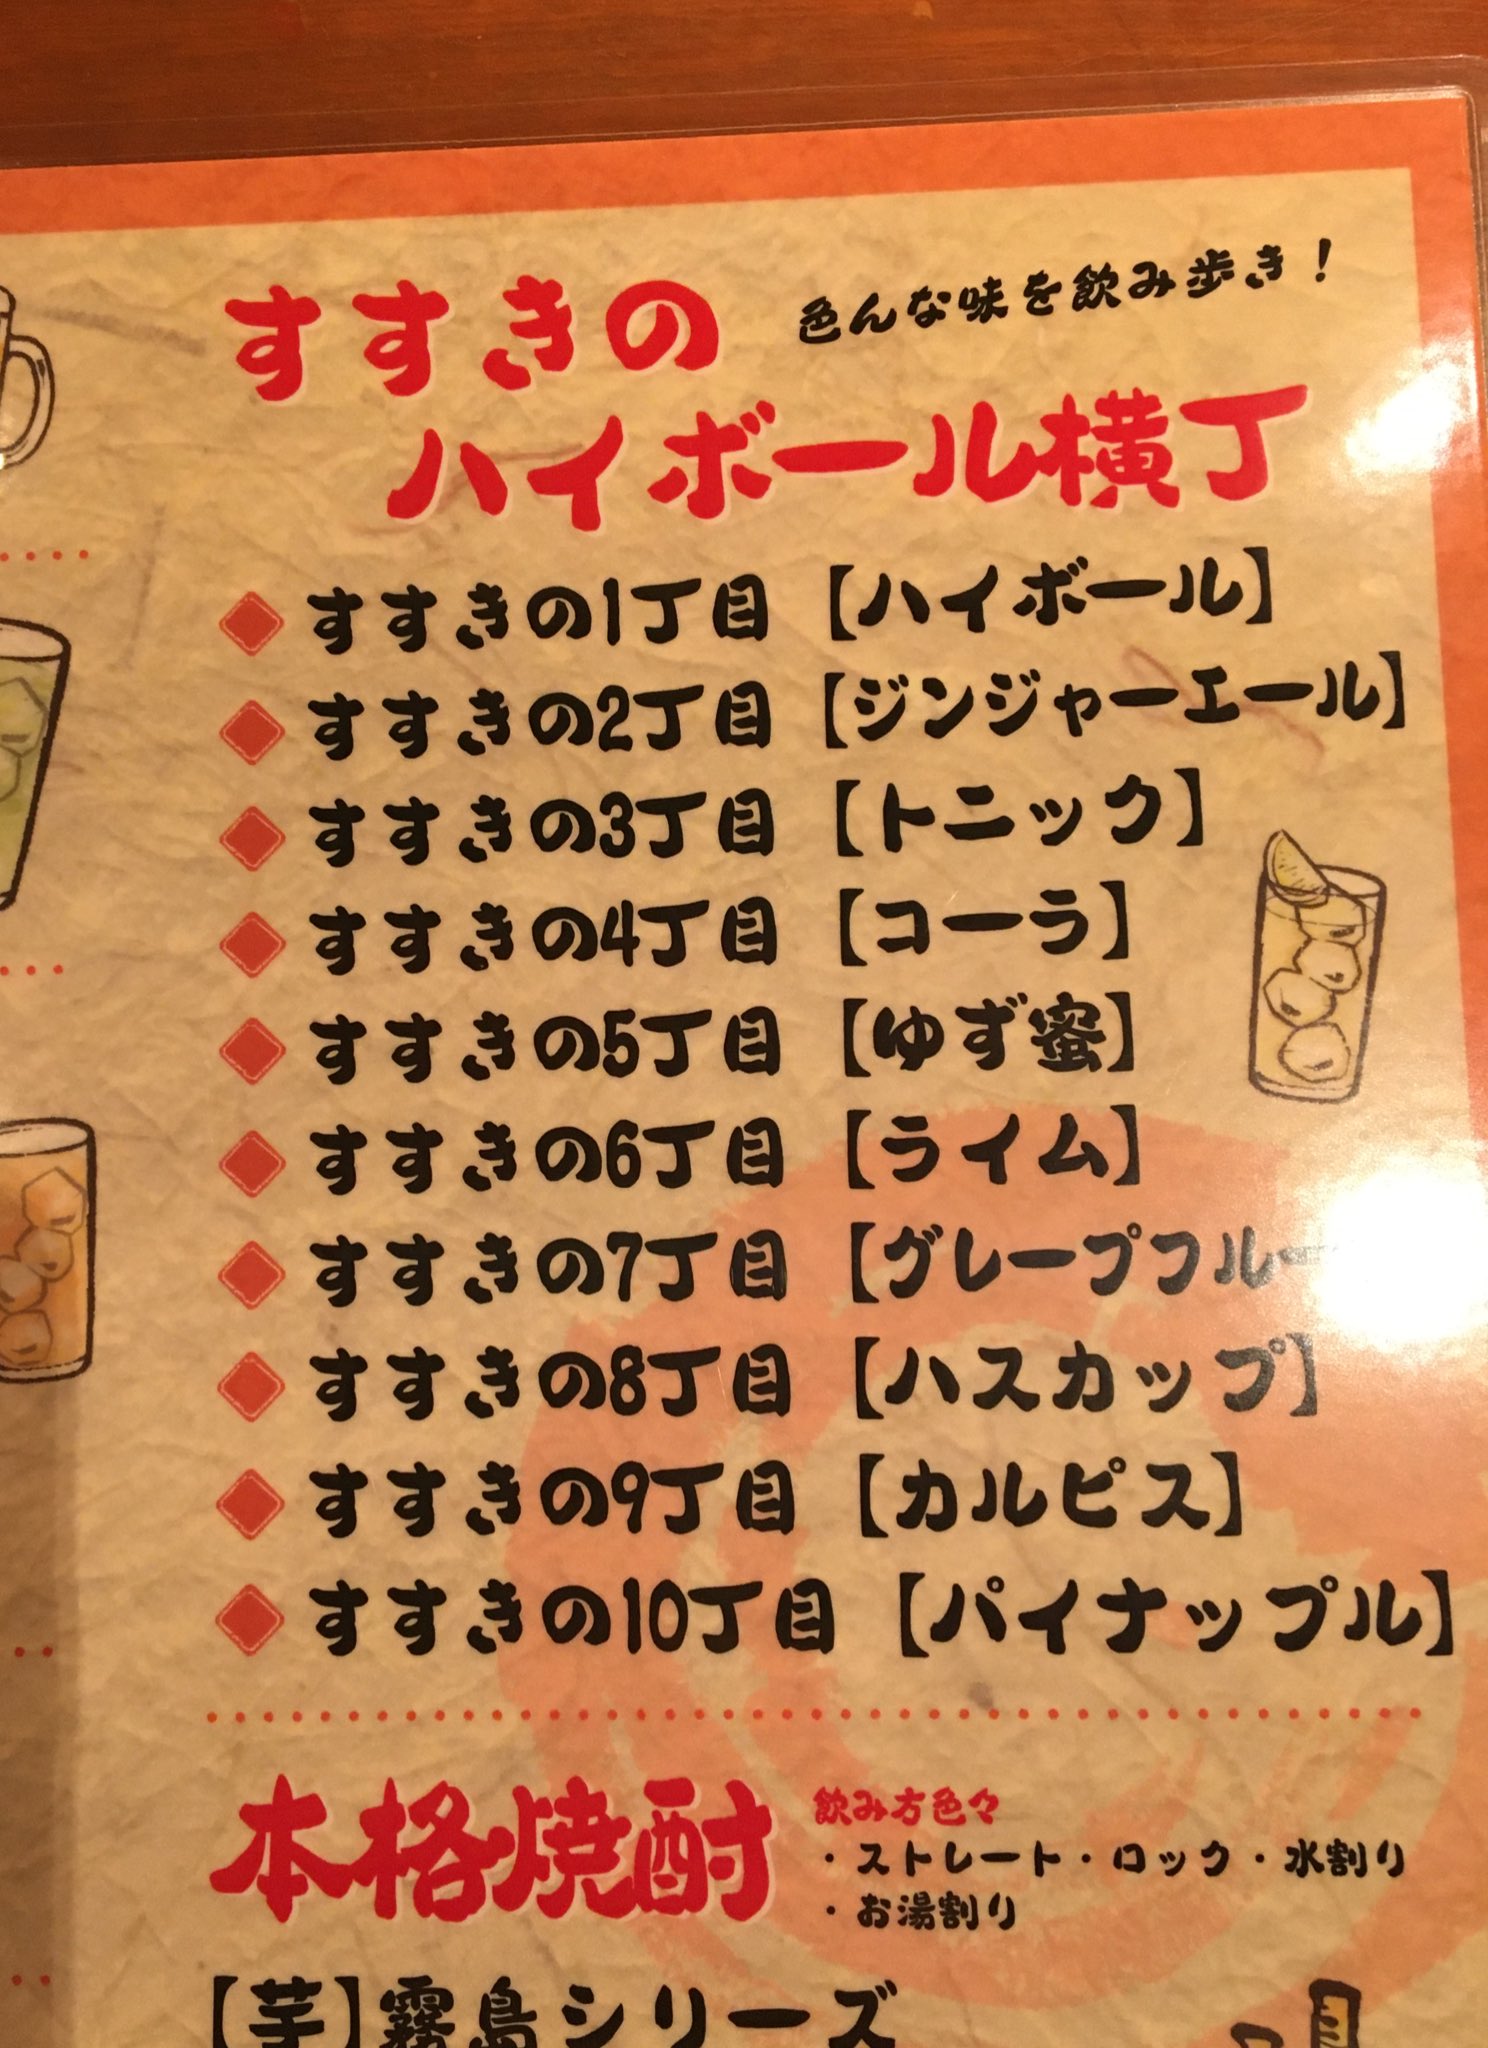 すすきの
色んな味を飲み歩き！
ハイボール横丁
すすきの1丁目【ハイボール】
すすきの2丁目【ジンジャーエール】
すすきの3丁目【トニック】
すすきの4丁目【コーラ】
すすきの5丁目【ゆず蜜】
すすきの6丁目【ライム】
すすきの7丁目【グレープフルー
すすきの8丁目【ハスカップ】
すすきの9丁目【カルピス】
すすきの10丁目【パイナップル】
本格焼酎
飲み方色々
・ストレート・ロック・水割り
・お湯割り
【芋】霧島シリーズ